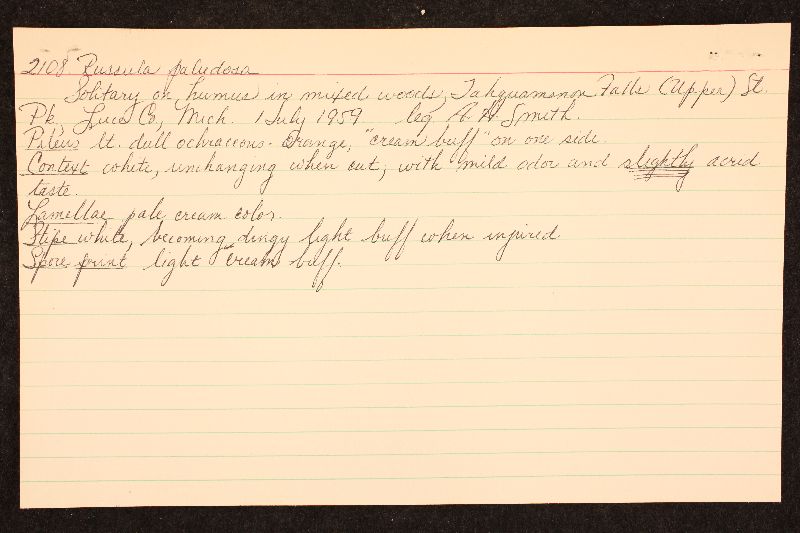 2108 Russula paludosa
Solitary on humus in mixed woods, Tahquamenon Falls (Upper) St.
Pk., Luce Co., Mich. 1 July 1959 leg A. H. Smith.
Pileus lt. dull ochraceous-orange, "cream buff" on one side.
Context white, unchanging when cut, with mild odor and slightly acrid
taste.
Lamellae pale cream color.
Stipe white, becoming dingy light buff when injured
Spore print light "cream buff.